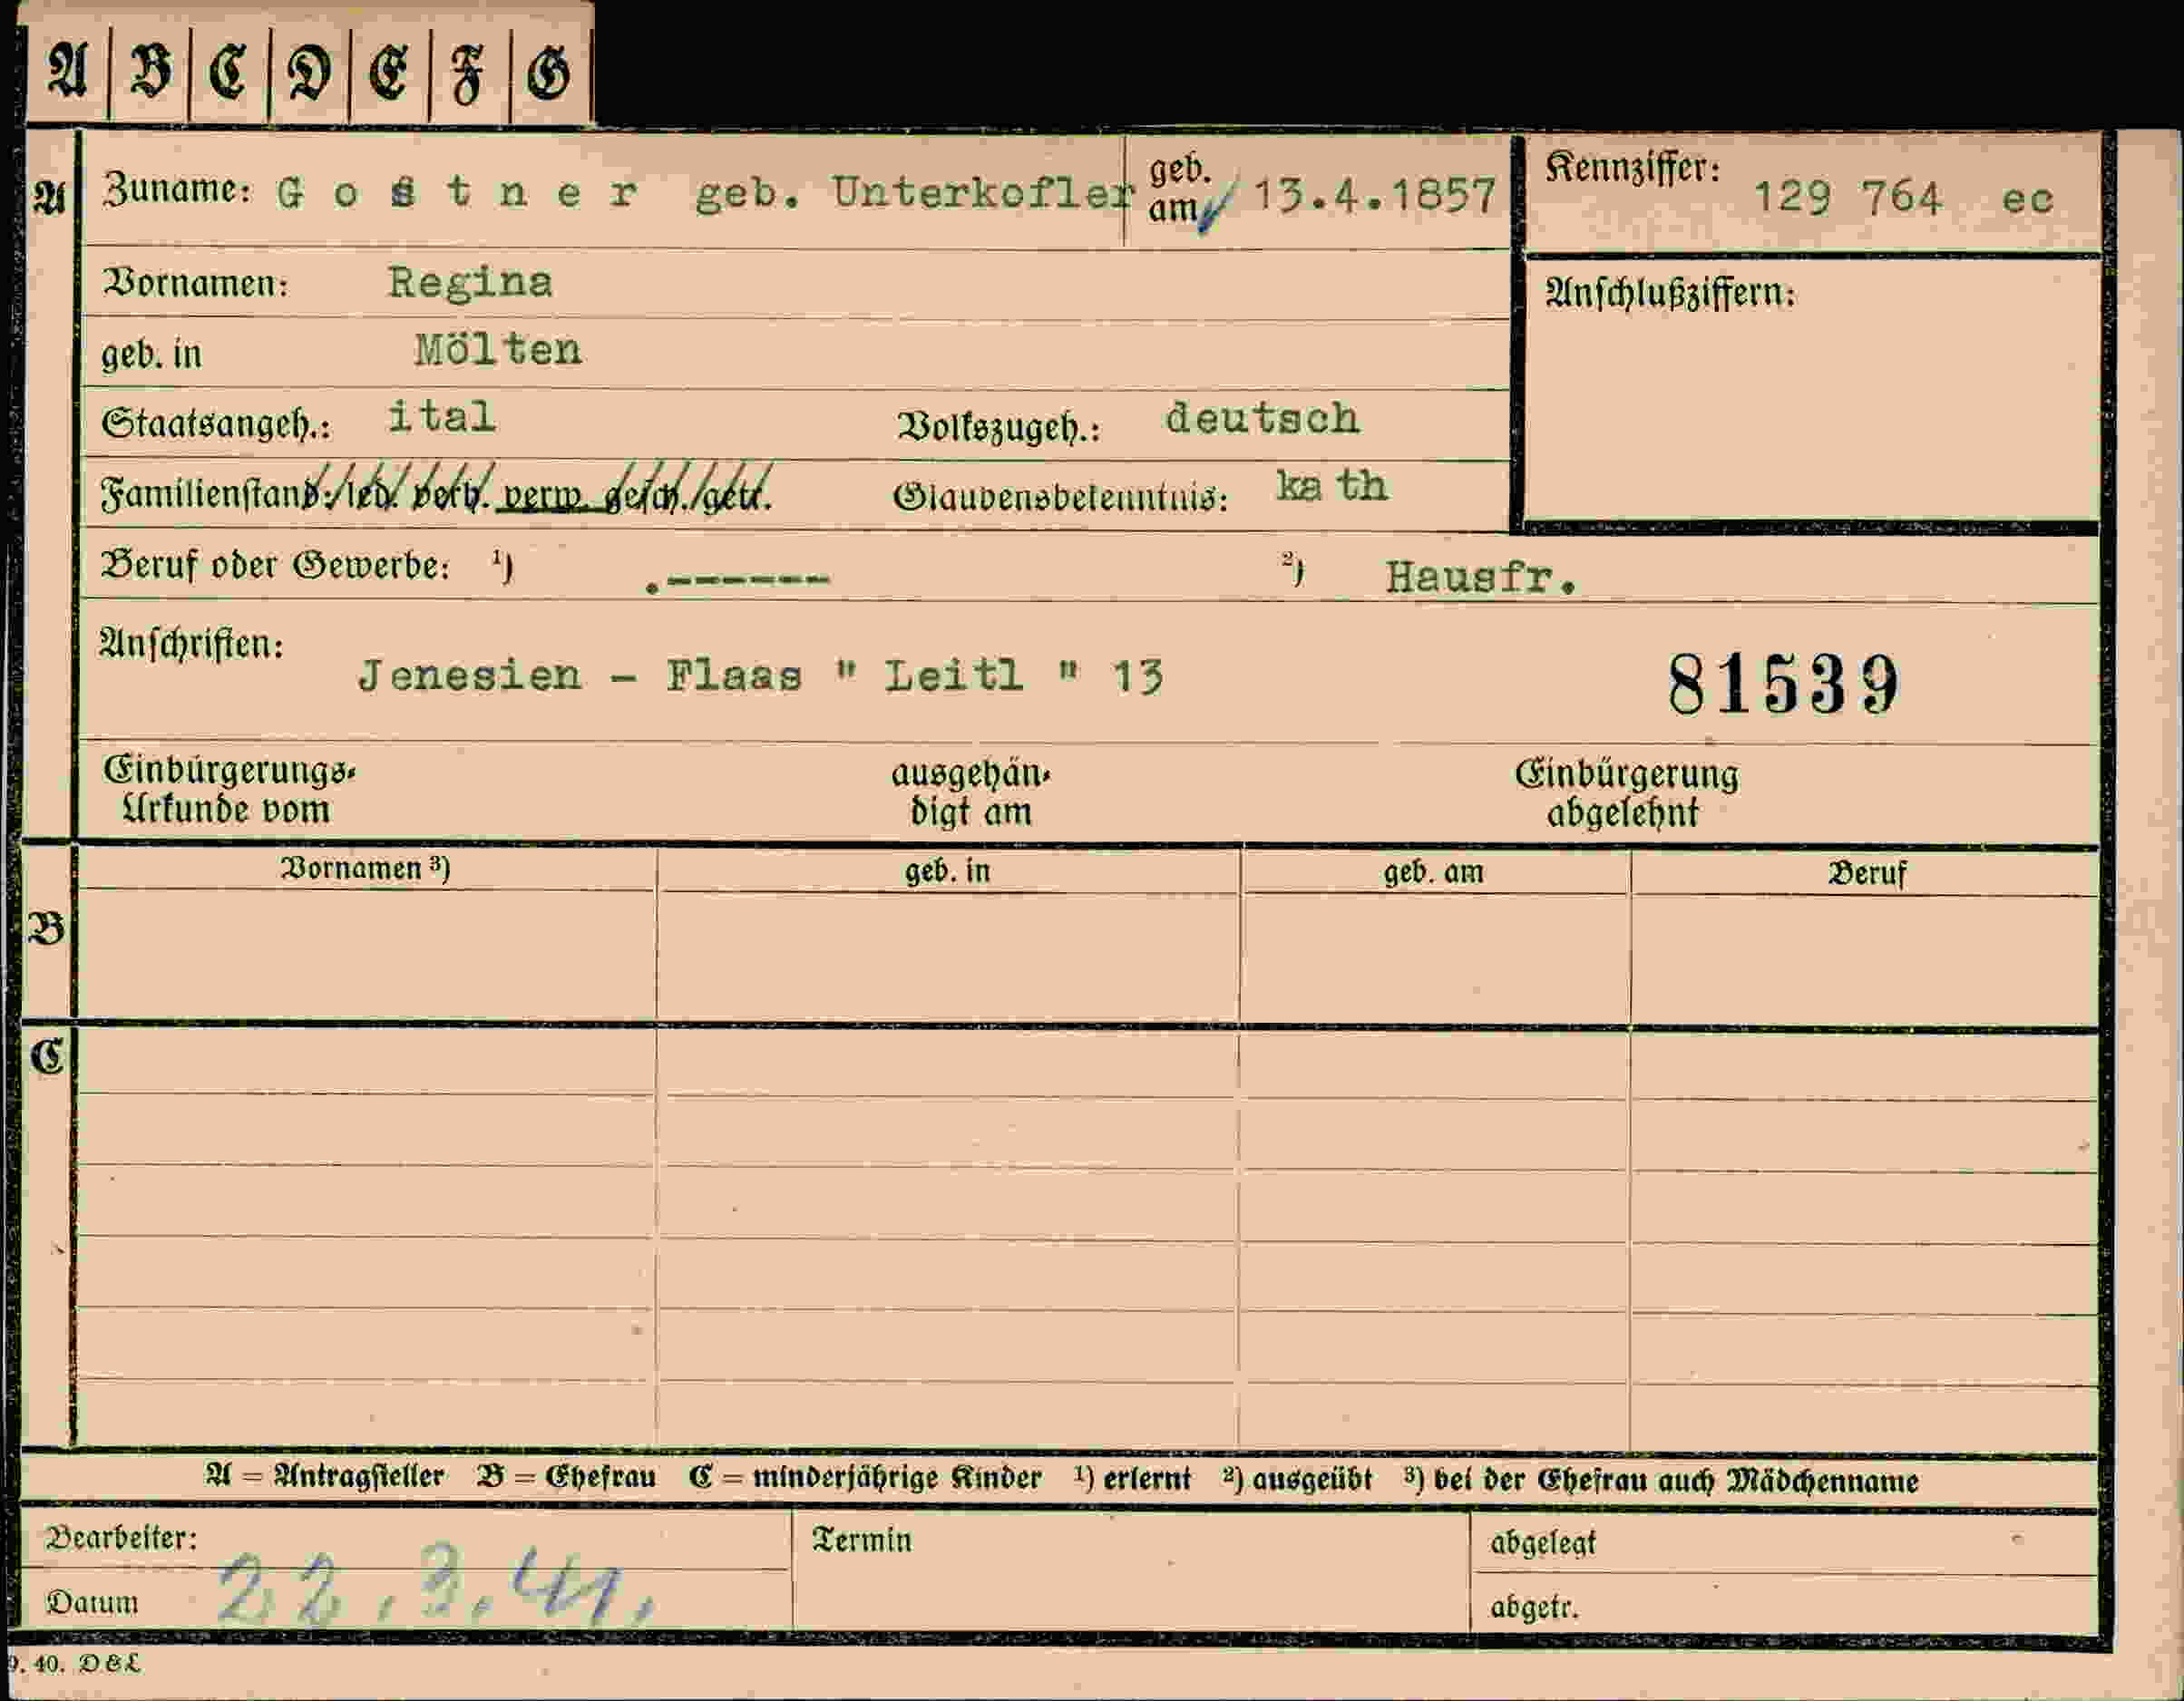 A B C D E F G
A Zuname: G o s t n e r geb. Unterkofler geb. am 13.4.1857 Kennziffer: 129 764 ec
Vornamen: Regina Anschlußziffern:
geb. in Mölten
Staatsangeh.: ital Volkszugeh.: deutsch
Familienstand: led. verh. verw. gesch. getr. Glaubensbekenntnis: ka th
Beruf oder Gewerbe: ¹) .------ ²) Hausfr.
Anschriften:
Jenesien - Flaas " Leitl " 13 81539
Einbürgerungs- ausgehän- Einbürgerung
Urkunde vom digt am abgelehnt
Vornamen ³) geb. in geb. am Beruf
B
C
A = Antragsteller B = Ehefrau C = minderjährige Kinder ¹) erlernt ²) ausgeübt ³) bei der Ehefrau auch Mädchenname
Bearbeiter: Termin abgelegt
Datum 22.3.41. abgetr.
9. 40. D&L